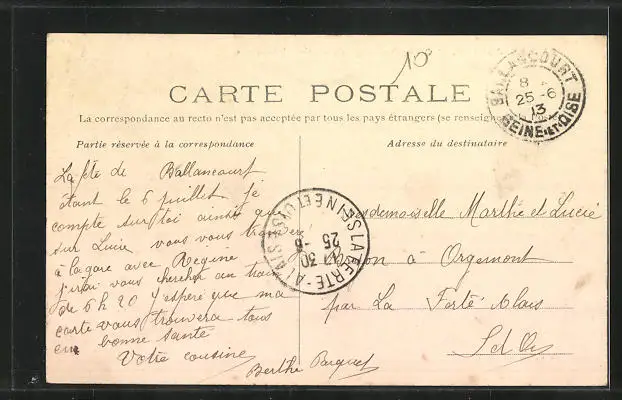 10⁰
CARTE POSTALE
La correspondance au recto n'est pas acceptée par tous les pays étrangers (se renseigner
Partie réservée à la correspondance
Adresse du destinataire
BALLANCOURT
8
25-6
13
SEINE-ET-OISE
La fête de Ballancourt
étant le 6 juillet je
compte sur toi ainsi que
sur Lucie vous vous
à la gare avec Regine
j'irai vous chercher au train
de 6h20 j'espère que ma
carte vous trouvera tous
en bonne santé
Votre cousine
Berthe
LA FERTE-ALAIS
SEINE ET OISE
17 30
25-6
esdemoiselle Marthe et Lucie
à Orgemont
par La Ferté Alais
S et Oise